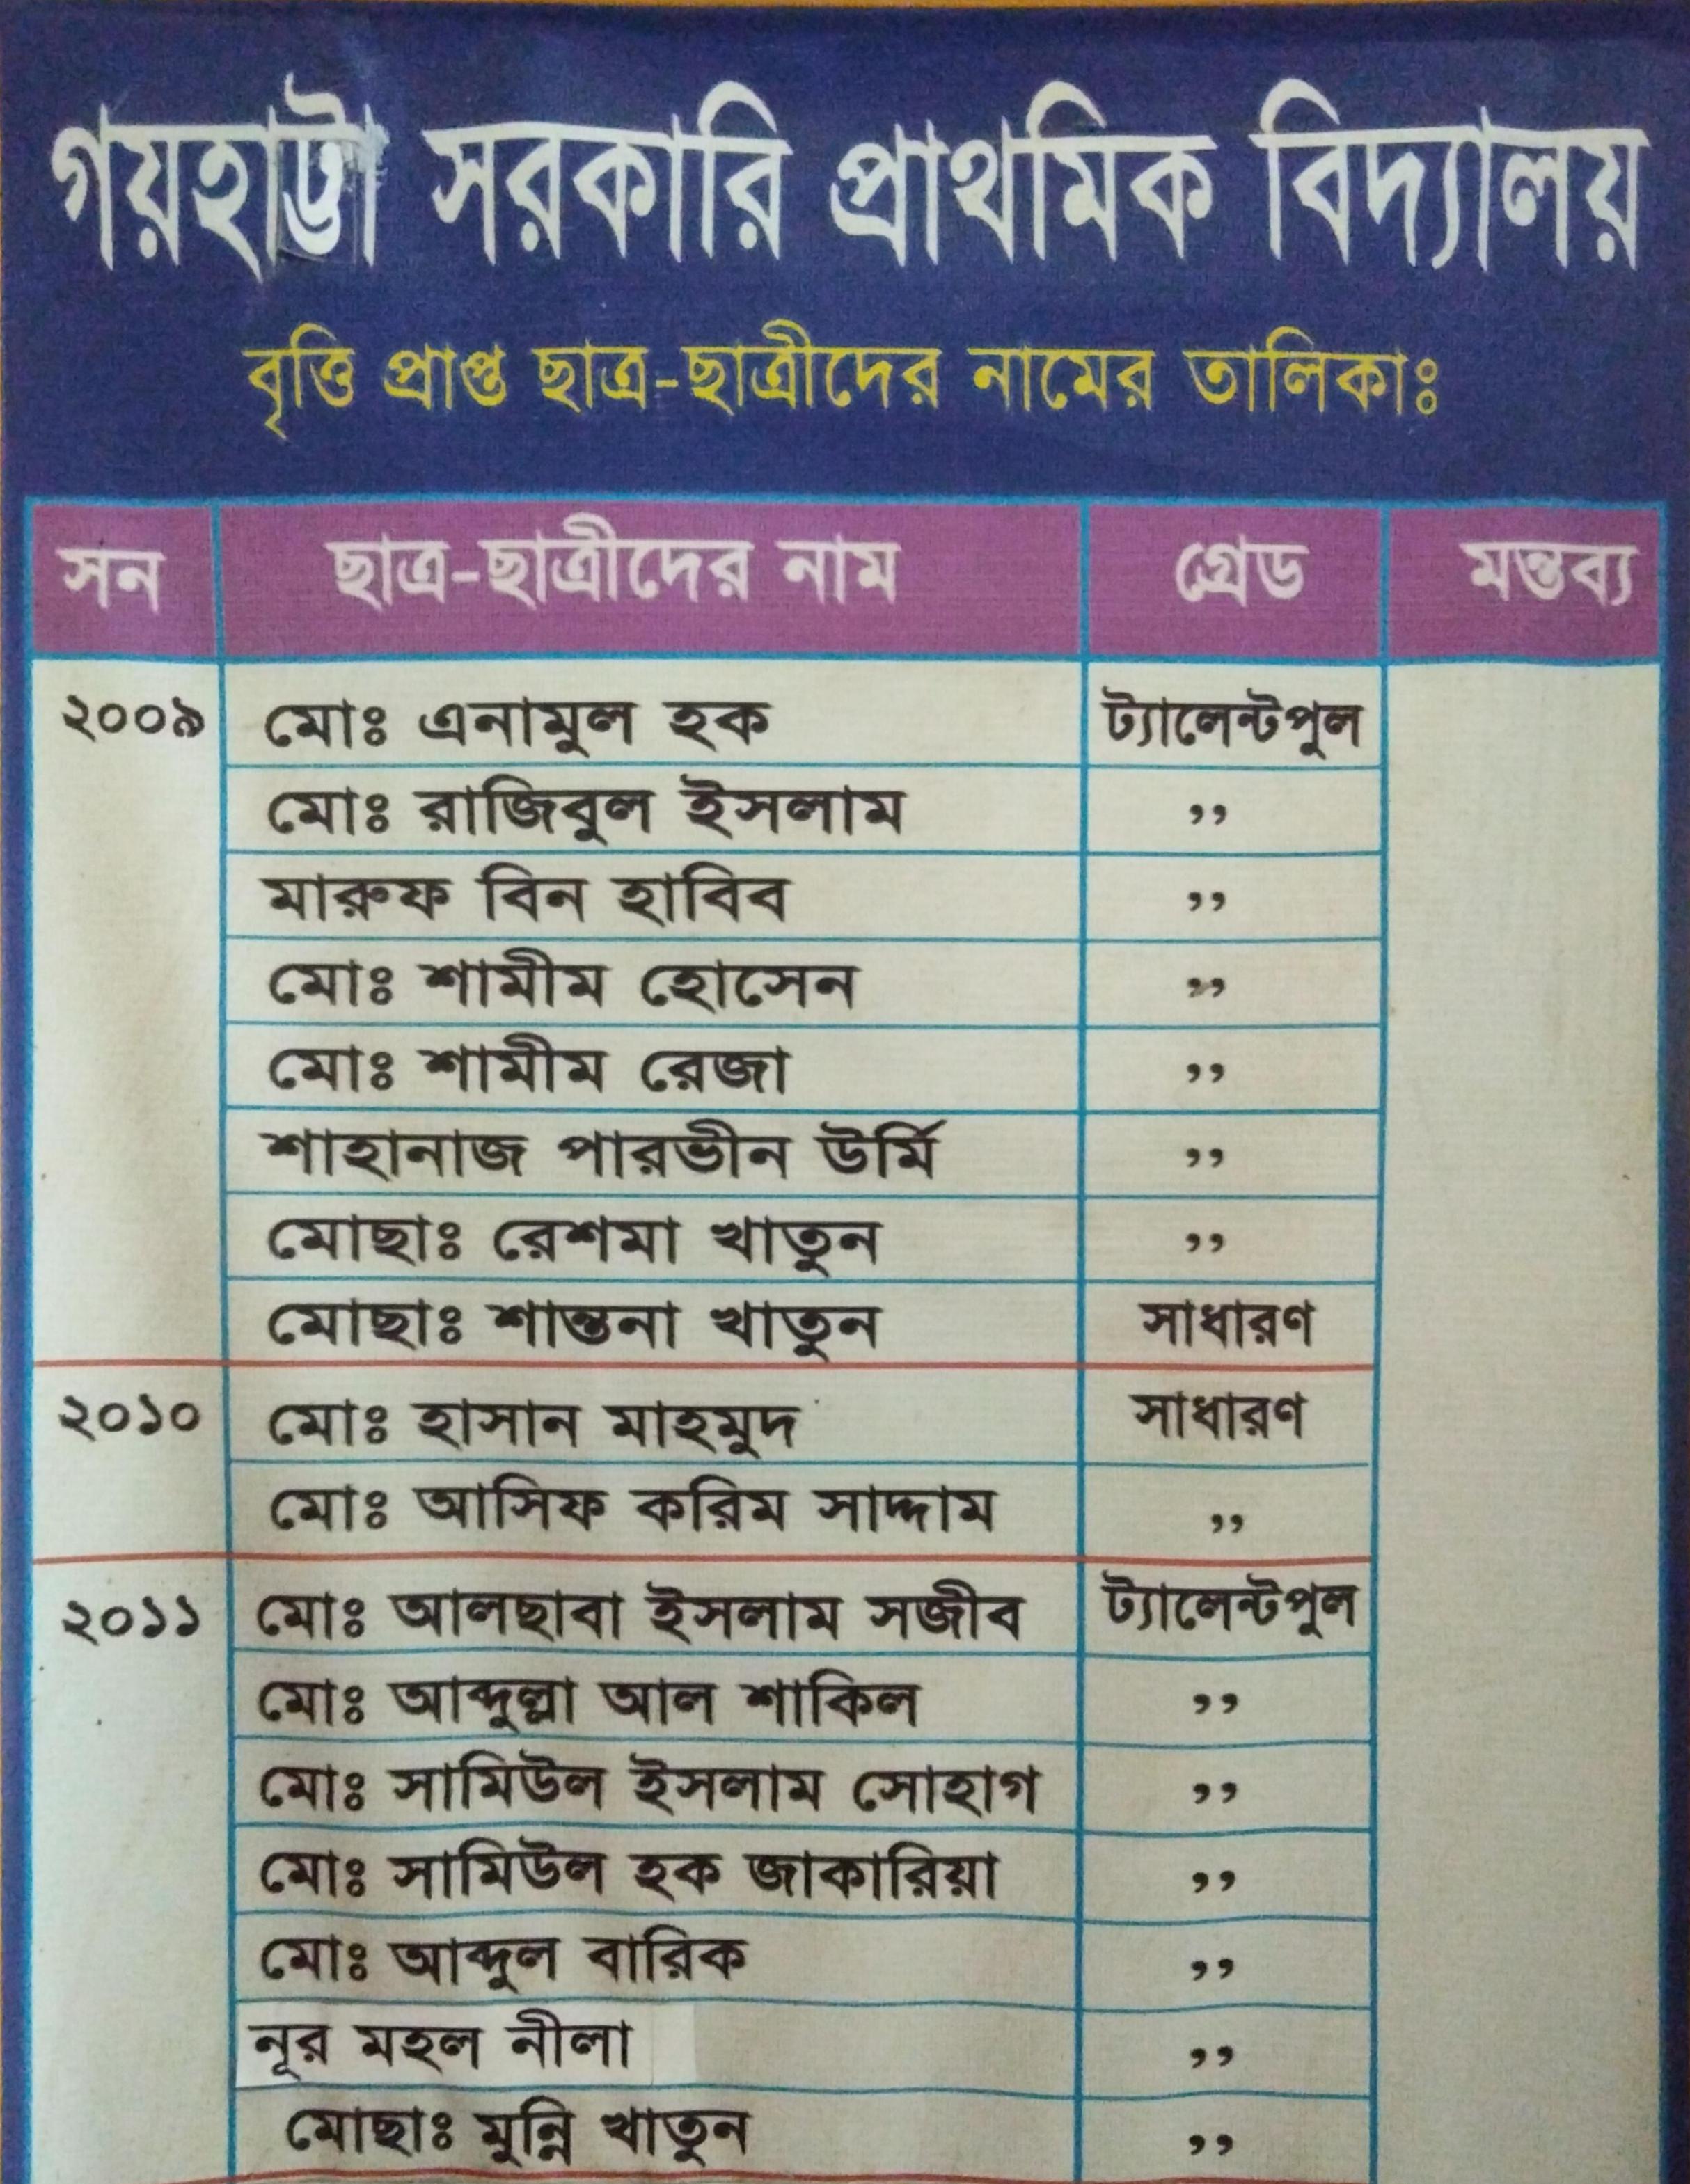 গয়হাট্টা সরকারি প্রাথমিক বিদ্যালয়
বৃত্তি প্রাপ্ত ছাত্র-ছাত্রীদের নামের তালিকাঃ
সন ছাত্র-ছাত্রীদের নাম গ্রেড মন্তব্য
২০০৯ মোঃ এনামুল হক ট্যালেন্টপুল
মোঃ রাজিবুল ইসলাম ,,
মারুফ বিন হাবিব ,,
মোঃ শামীম হোসেন ,,
মোঃ শামীম রেজা ,,
শাহানাজ পারভীন উর্মি ,,
মোছাঃ রেশমা খাতুন ,,
মোছাঃ শান্তনা খাতুন সাধারণ
২০১০ মোঃ হাসান মাহমুদ সাধারণ
মোঃ আসিফ করিম সাদ্দাম ,,
২০১১ মোঃ আলছাবা ইসলাম সজীব ট্যালেন্টপুল
মোঃ আব্দুল্লা আল শাকিল ,,
মোঃ সামিউল ইসলাম সোহাগ ,,
মোঃ সামিউল হক জাকারিয়া ,,
মোঃ আব্দুল বারিক ,,
নূর মহল নীলা ,,
মোছাঃ মুন্নি খাতুন ,,